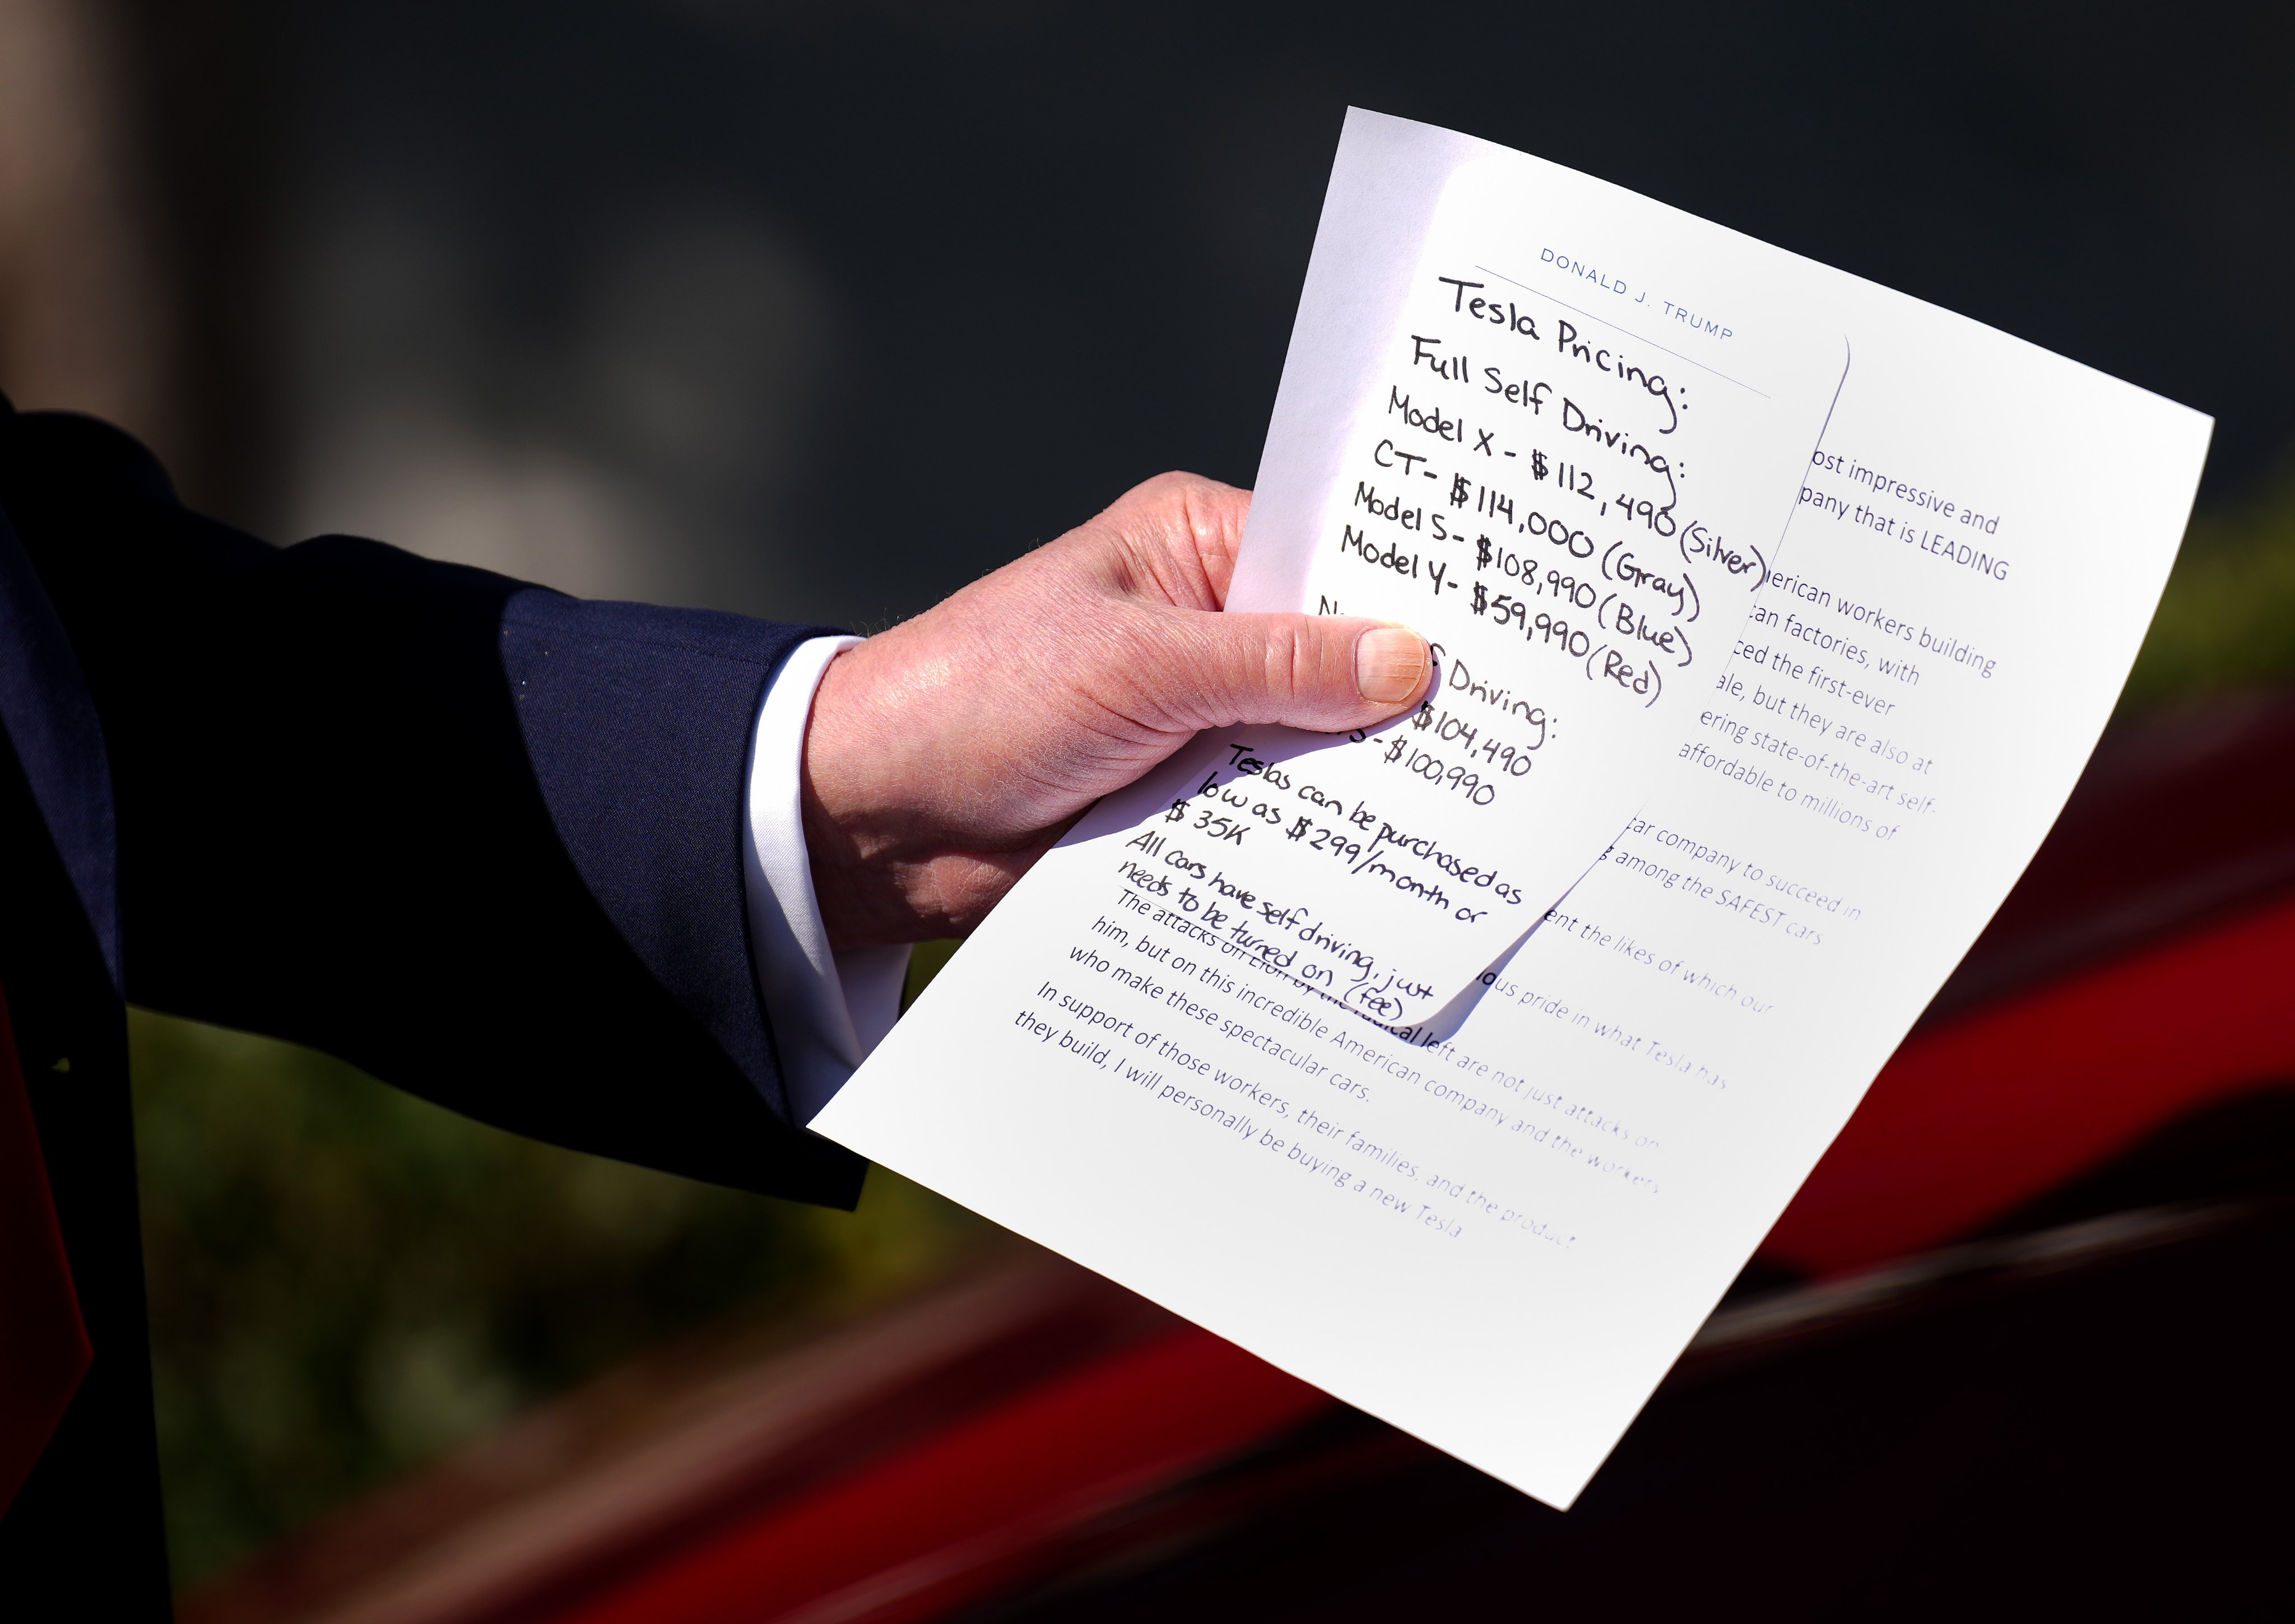 DONALD J. TRUMP
Tesla Pricing:
Full Self Driving:
Model X - $112,490 (Silver)
CT - $114,000 (Gray)
Model S - $108,990 (Blue)
Model Y - $59,990 (Red)
Driving:
$104,490
S - $100,990
Teslas can be purchased as
low as $299/month or
$35K
All cars have self driving, just
needs to be turned on (fee)
impressive and
that is LEADING
workers building
factories, with
the first-ever
but they are also at
state-of-the-art self-
affordable to millions of
car company to succeed in
among the SAFEST cars
the likes of which our
pride in what Tesla has
The attacks on Elon by the radical left are not just attacks on
him, but on this incredible American company and the workers
who make these spectacular cars.
In support of those workers, their families, and the product
they build, I will personally be buying a new Tesla